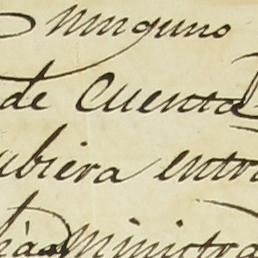 Ninguno
de Cuenta
ubiera entr
Ministra